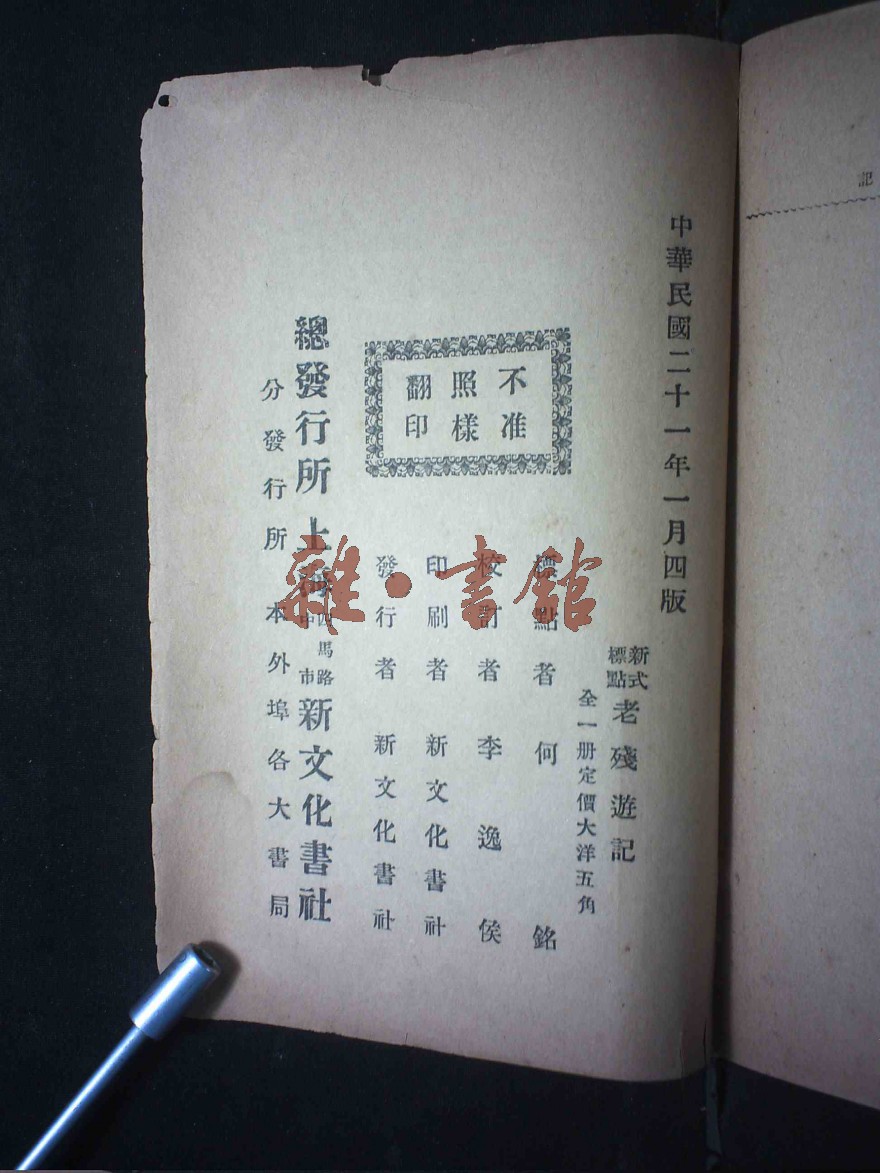 記
中華民國二十一年一月四版
新式
標點
老殘遊記
全一册定價大洋五角
不准
照樣
翻印
標點者 何 銘
校訂者 李逸侯
印刷者 新文化書社
發行者 新文化書社
總發行所 上海 四馬路 中市 新文化書社
分發行所 本外埠各大書局
雜·書館